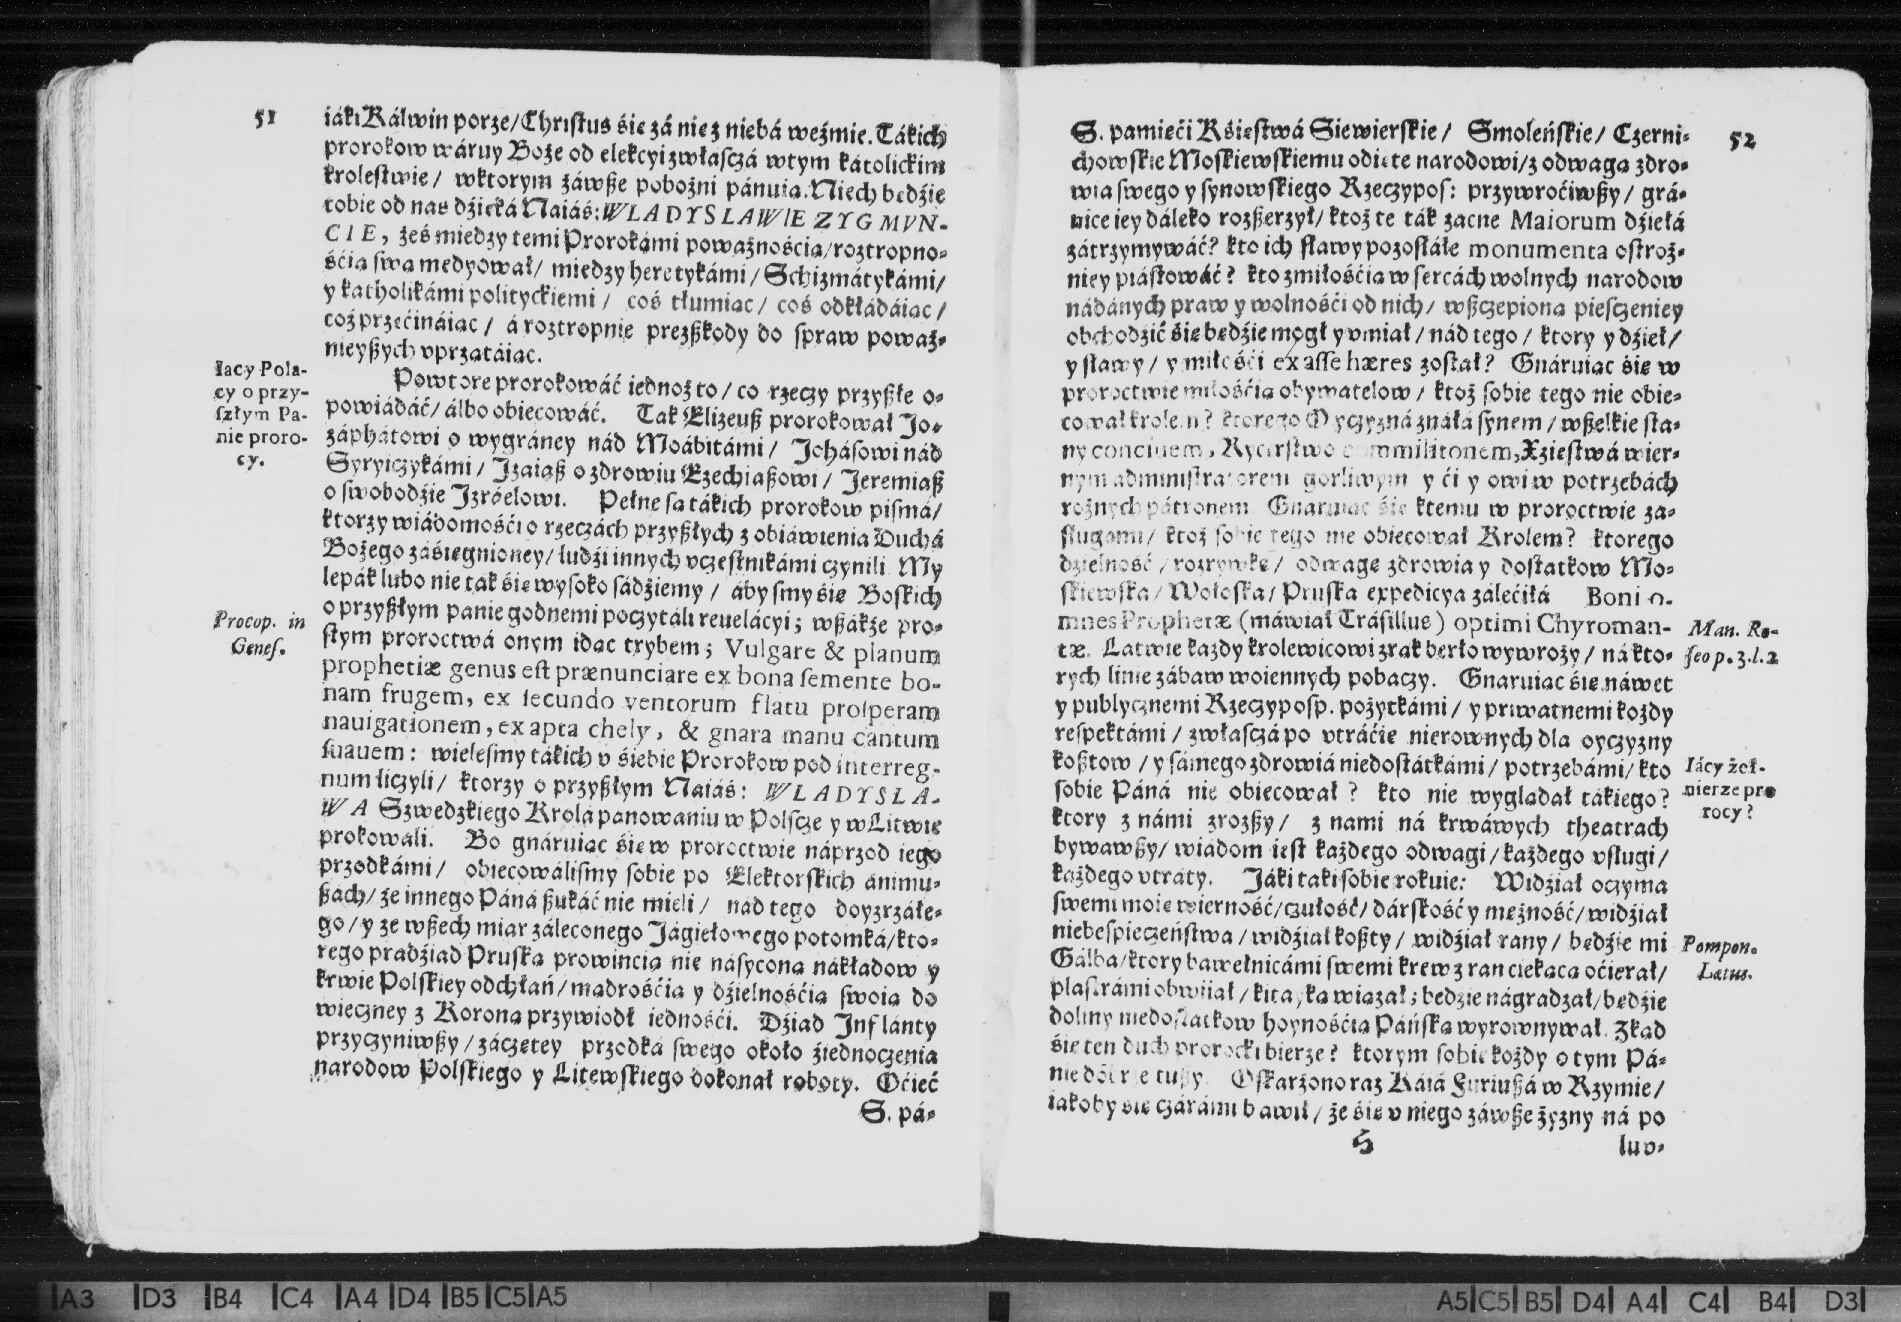 51
iáki Kálwin porze/Christus śie zá nie z niebá weźmie. Tákich
prorokow wáruy Boże od elekcyi zwłasczá wtym kátolickim
krolestwie/ wktorym záwße pobożni pánuia. Niech będźie
tobie od nas dźięká Naiáś: WLADYSLAWIE ZYGMVN-
CIE, żeś miedzy temi Prorokámi poważnośćia/roztropno-
śćia swa medyował/ miedzy heretykámi/Schizmátykámi/
y katholikámi polityckiemi/ coś tłumiac/ coś odkłádáiac/
coż przećináiac/ á roztropnie prezßkody do spraw poważ-
nieyßych vprzatáiac.
Iacy Pola-
cy o przy-
szłym Pa-
nie proro-
cy.
Powtore prorokowáć iednoż to/ co rzeczy przyßłe o-
powiádáć/álbo obiecowáć. Tak Elizeuß prorokował Jo-
záphátowi o wygráney nád Moábitámi/ Joházowi nád
Syryiczykámi/ Jzaiaß o zdrowiu Ezechiaßowi/ Jeremiaß
o swobodźie Jzráelowi. Pełne sa tákich prorokow pismá/
ktorzy wiádomośći o rzeczách przyßłych z obiáwienia Duchá
Bożego záśiegnioney/ludźi innych vczestnikámi czynili. My
lepák lubo nie tak śie wysoko sádźiemy/ áby smy śie Boskich
o przyßłym panie godnemi poczytáli reuelácyi; wßákże pro-
Procop. in
Genes.
stym proroctwá onym idac trybem; Vulgare & planum
prophetiæ genus est prænunciare ex bona semente bo-
nam frugem, ex secundo ventorum flatu prosperam
nauigationem, ex apta chely, & gnara manu cantum
suauem: wielesmy tákich v śiebie Prorokow pod interreg-
num liczyli/ ktorzy o przyßłym Naiáś: WLADYSLA-
WA Szwedzkiego Krola panowaniu w Polscze y w Litwie
prokowali. Bo gnáruiac śie w proroctwie náprzod iego
przodkámi/ obiecowálismy sobie po Elektorskich ánimu-
ßách/ że innego Páná ßukáć nie mieli/ nad tego doyzrzáłe-
go/ y ze wßech miar záleconego Jágiełowego potomká/kto-
rego pradźiad Pruska prowincia nie násycona nákładow y
krwie Polskiey odchłań/ madrośćia y dźielnośćia swoia do
wieczney z Korona przywiodł iednośći. Dźiad Inflánty
przyczyniwßy/záczętey przodká swego około źiednoczenia
narodow Polskiego y Litewskiego dokonał roboty. Oćieć
S. pá-
52
S. pamięći Kśięstwá Siewierskie/ Smoleńskie/ Czerni-
chowskie Moskiewskiemu odięte narodowi/z odwaga zdro-
wia swego y synowskiego Rzeczypos: przywroćiwßy/ grá-
nice iey dáleko rozßerzył/ktoż te ták zacne Maiorum dźiełá
zátrzymywáć? kto ich sławy pozostáłe monumenta ostroż-
niey piástowáć? kto z miłośćia w sercách wolnych narodow
nádánych praw y wolnośći od nich/ wßczepiona piesczeniey
obchodźić śie będźie mogł y vmiał/ nád tego/ ktory y dźieł/
y sławy/ y miłośći ex asse hæres został? Gnáruiac śie w
proroctwie miłośćia obywatelow/ ktoż sobie tego nie obie-
cował krolem? ktorego Oyczyzná znáłá synem/ wßelkie sta-
ny conciuem, Rycerstwo commilitonem, Xzięstwá wier-
nym administratorem gorliwym y ći y owi w potrzebách
rożnych pátronem Gnaruiac śie ktemu w proroctwie za-
sługami/ ktoż sobie tego nie obiecował Krolem? ktorego
dzielność/ rozrywkę/ odwagę zdrowia y dostatkow Mo-
skiewska/ Wołoska/ Pruska expedicya zálećiłá Boni o-
mnes Prophetæ (máwiał Trásillus) optimi Chyroman-
tæ. Latwie każdy krolewicowi z rak berło wywroży/ ná kto-
Man. Ro-
seo p. 3. l. 2
rych linie zábaw woiennych pobaczy. Gnaruiac śie náwet
y publycznemi Rzeczyposp. pożytkámi/ y priwatnemi kożdy
respektámi/ zwłasczá po vtráćie nierownych dla oyczyzny
koßtow/ y sámego zdrowiá niedostátkámi/ potrzebámi/ kto
Iácy żoł-
nierze pro
rocy?
sobie Páná nie obiecował? kto nie wygladał tákiego?
ktory z námi zrozßy/ z nami ná krwáwych theatrach
bywawßy/ wiádom iest każdego odwagi/ każdego vsługi/
każdego vtraty. Jáki taki sobie rokuie: Widźiał oczyma
swemi moie wierność/czułość/ dárskość y mężność/ widźiał
niebespieczeństwa/ widźiał koßty/ widźiał rany/ będźie mi
Pompon.
Lætus.
Galba/ktory bawełnicámi swemi krew z ran ciekaca oćierał/
plastrámi obwiiał/ kitayka wiazał; będzie nágradzał/będźie
doliny niedostatkow hoynośćia Páńska wyrownywał. Zkad
śie ten duch prorocki bierze? ktorym sobie kożdy o tym Pá-
nie dobrze tußy. Oskarżono raz Káiá Furiußá w Rzymie/
iakoby śie czárámi bawił/ że śie v niego záwße żyzny ná po
H
luv-
A3 D3 B4 C4 A4 D4 B5 C5 A5
A5 C5 B5 D4 A4 C4 B4 D3